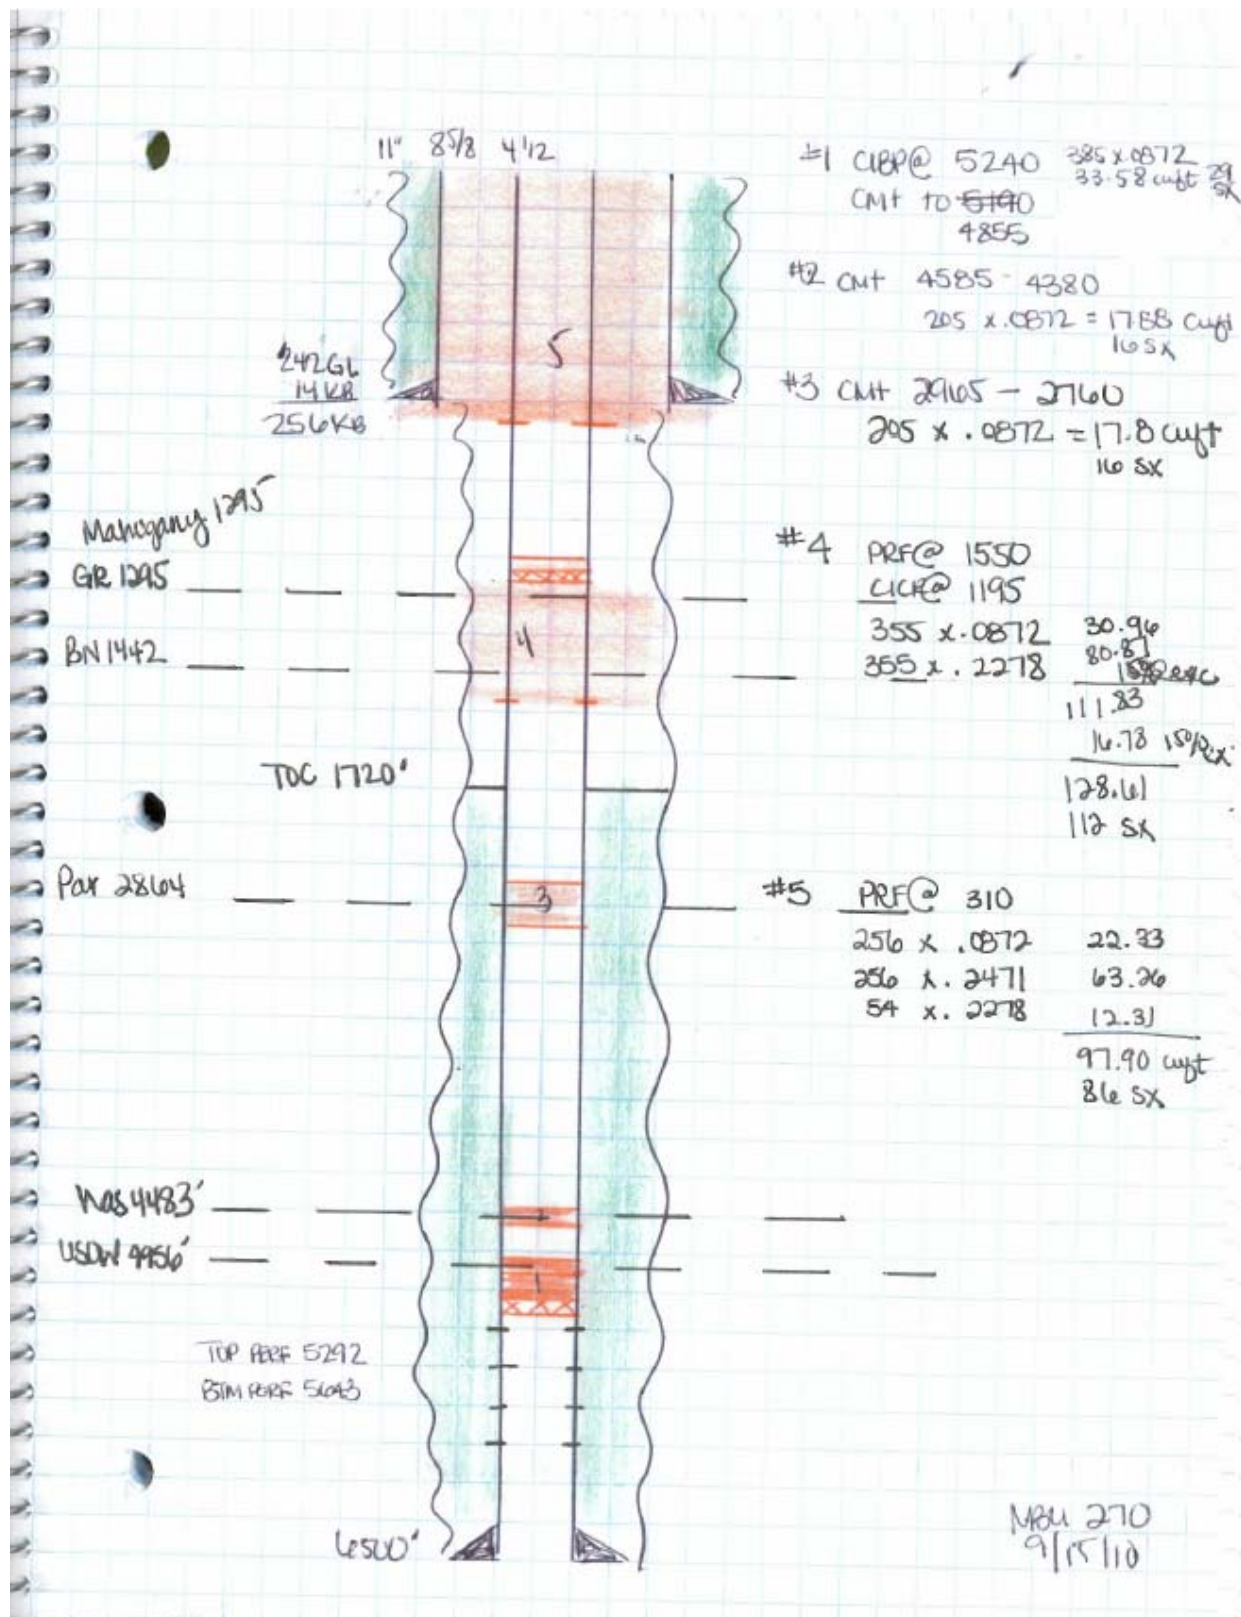 11" 8 5/8 4 1/2
242 GL
14 KB
256 KB
Mahogany 1295'
GR 1295
BN 1442
TOC 1720'
Par 2864
Was 4483'
USDW 4956'
TOP PERF 5292
BTM PERF 5643
6500'
5
4
3
2
1
#1 CIBP@ 5240 385 x .0872
33.58 cuft 29 sx
CMT to 5190
4855
#2 CMT 4585 - 4380
205 x .0872 = 17.88 cuft
16 SX
#3 CMT 2965 - 2760
205 x .0872 = 17.8 cuft
16 SX
#4 PRF@ 1550
CICR@ 1195
355 x .0872 30.96
355 x .2278 80.87
111.83
16.78 15% Ex.
128.61
112 SX
#5 PRF@ 310
256 x .0872 22.33
256 x .2471 63.26
54 x .2278 12.31
97.90 cuft
86 SX
NBU 270
9/15/10